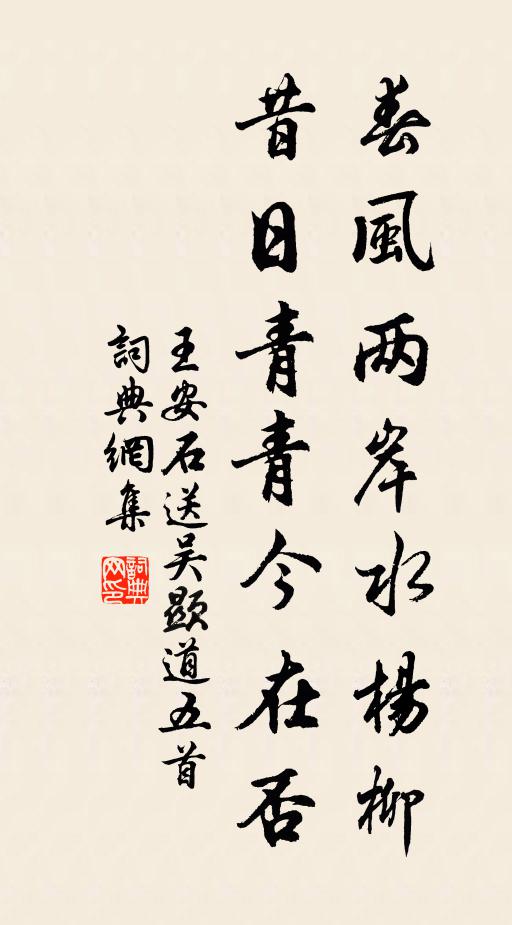 春風两岸水楊柳
昔日青青今在否
王安石送吴顯道五首
詞典網集
詞典网印